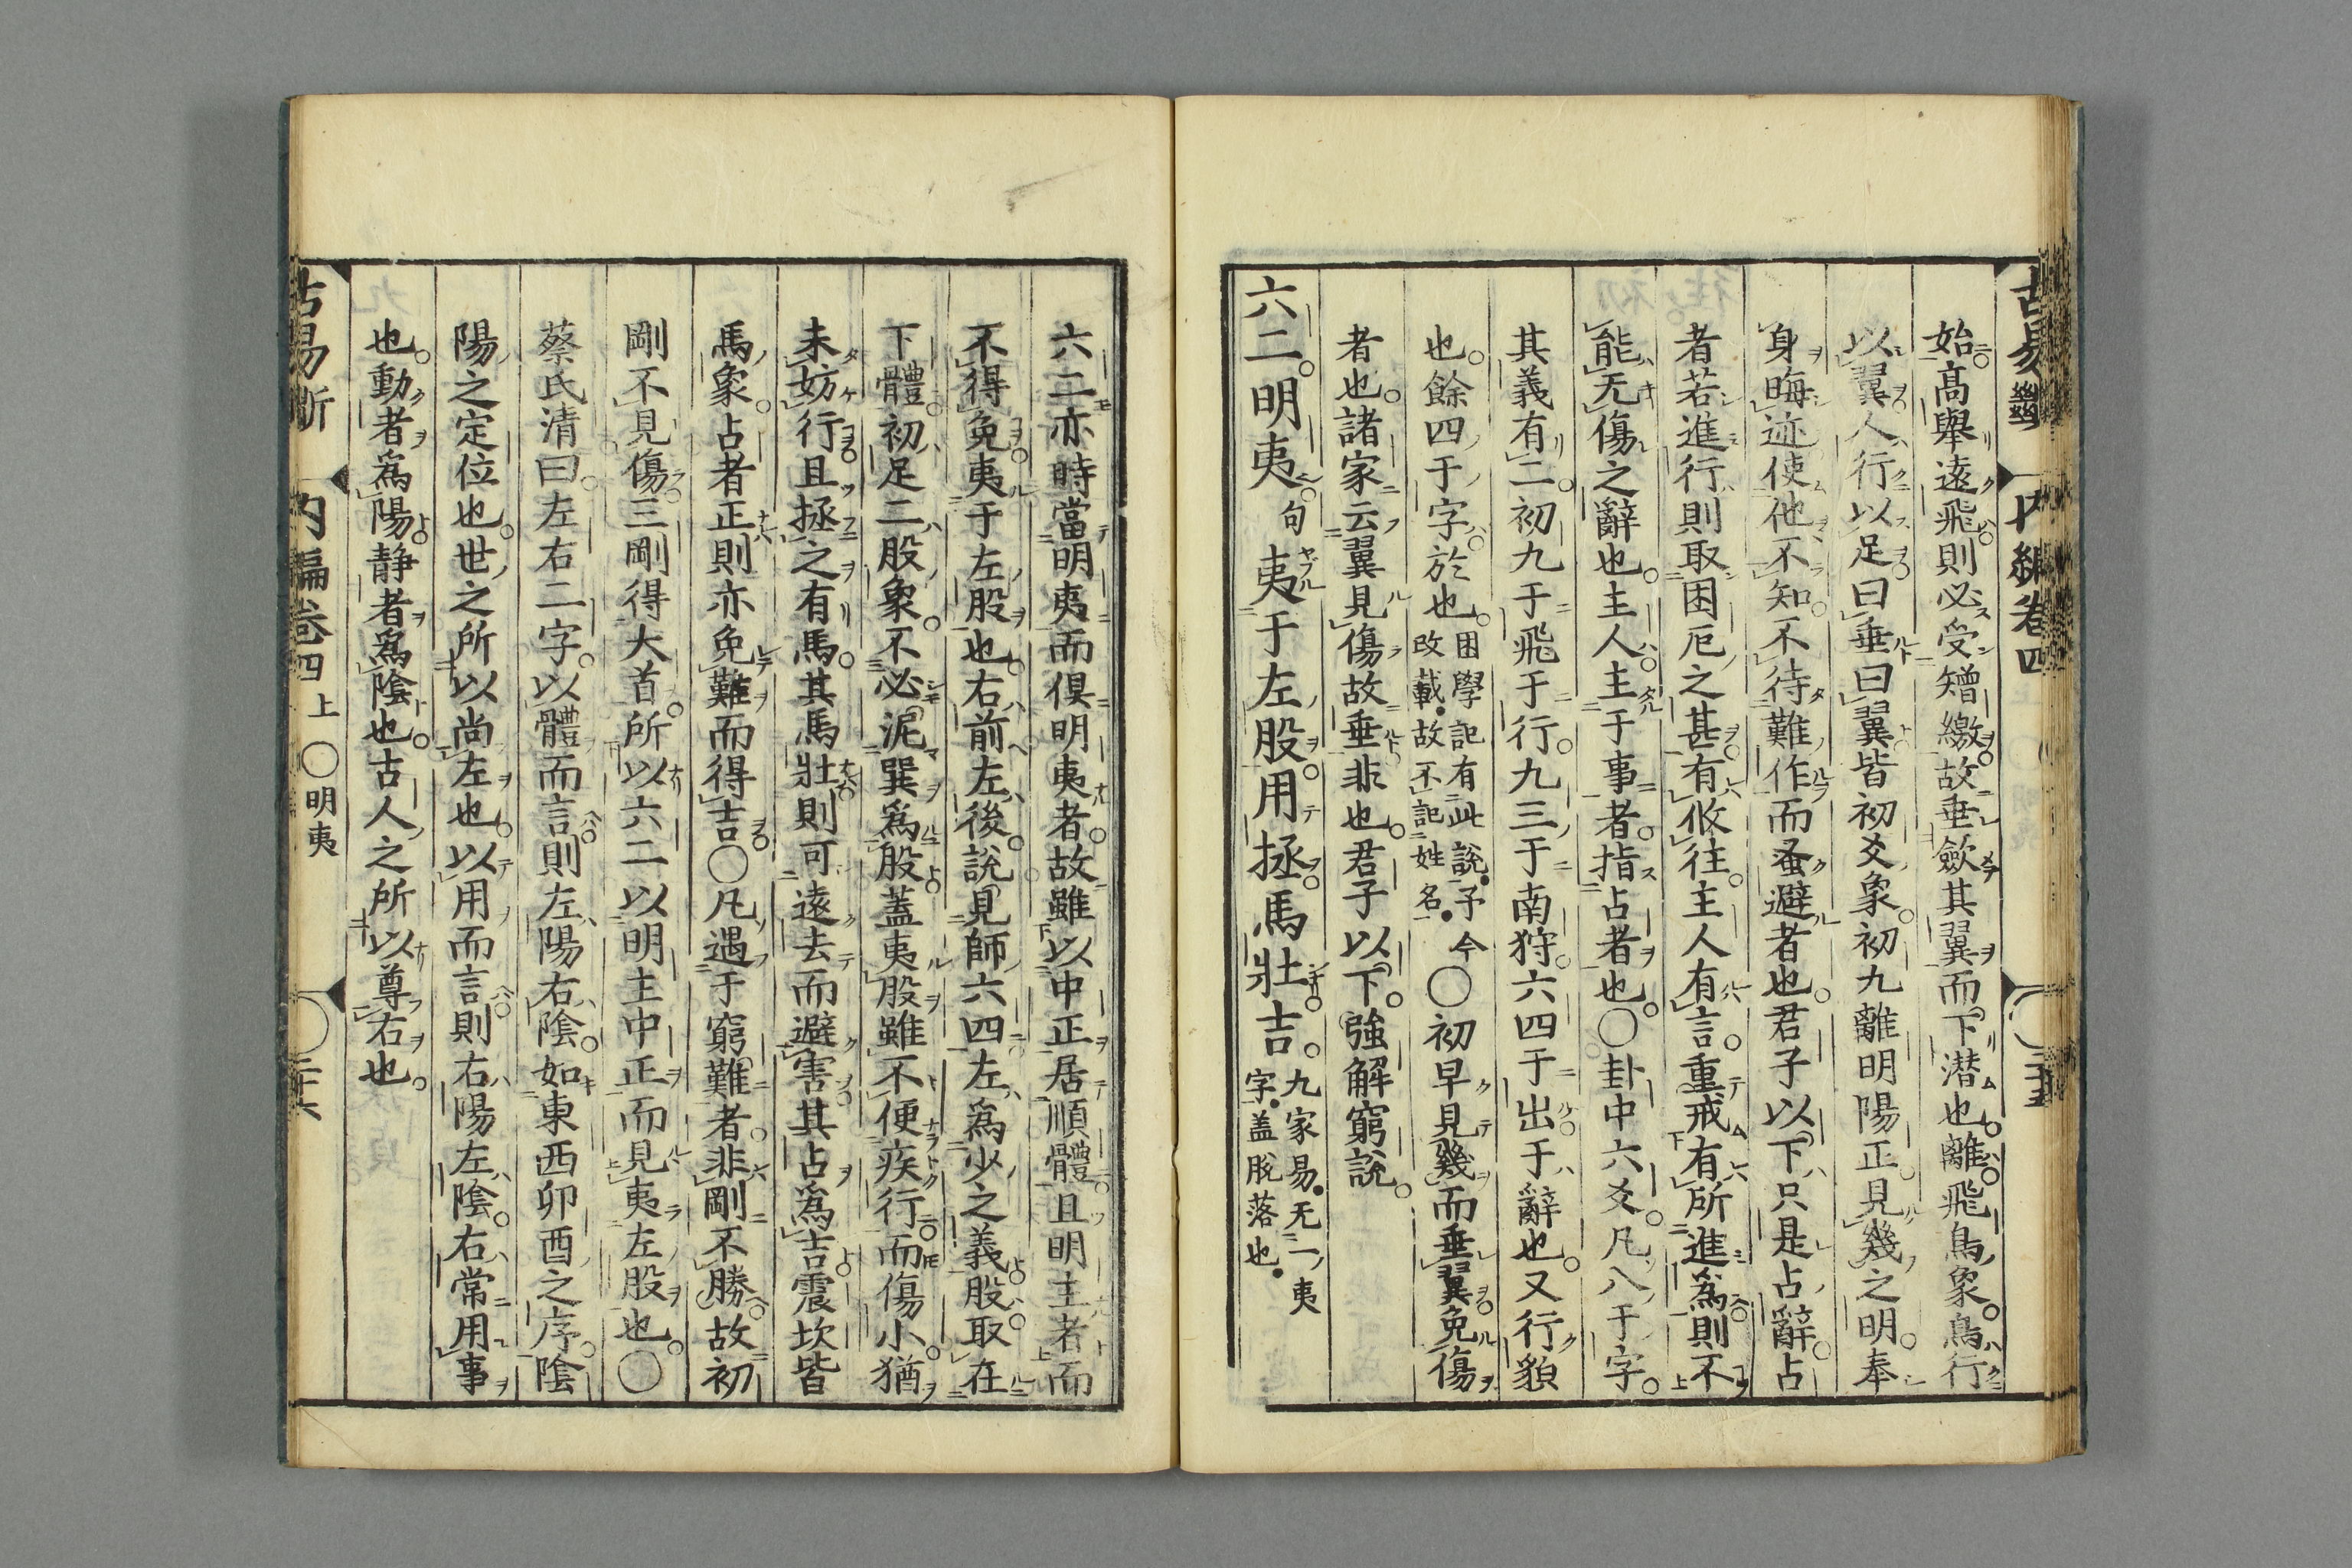 始高舉遠飛則必受矰繳故垂歛其翼而下潜也離飛鳥象鳥行
以翼人行以足曰垂曰翼皆初爻象初九離明陽正見幾之明奉
身晦迹使他不知不待難作而蚤避者也君子以下只是占辭占
者若進行則取困厄之甚有攸往主人有言重戒有所進為則不
能无傷之辭也主人主于事者指占者也〇卦中六爻凡八于字
其義有二初九于飛于行九三于南狩六四于出于辭也又行貌
也餘四于字於也困學記有此說予今改載故不記姓名〇初早見幾而垂翼免傷
者也諸家云翼見傷故垂非也君子以下強解窮說
六二明夷句夷于左股用拯馬壯吉九家易无一夷字蓋脫落也
内編卷四
六二亦時當明夷而偎明夷者故雖以中正居順體且明主者而
不得免夷于左股也右前左後說見師六四左為少之義股取在
下體初足二股象不必泥巽為股蓋夷股雖不便疾行而傷小猶
未妨行且拯之有馬其馬壯則可遠去而避害其占為吉震坎皆
馬象占者正則亦免難而得吉〇凡遇于窮難者非剛不勝故初
剛不見傷三剛得大首所以六二以明主中正而見夷左股也〇
蔡氏清曰左右二字以體而言則左陽右陰如東西卯酉之序陰
陽之定位也世之所以尚左也以用而言則右陽左陰右常用事
也動者為陽静者為陰也古人之所以尊右也
古易斷 内編卷四上 〇明夷